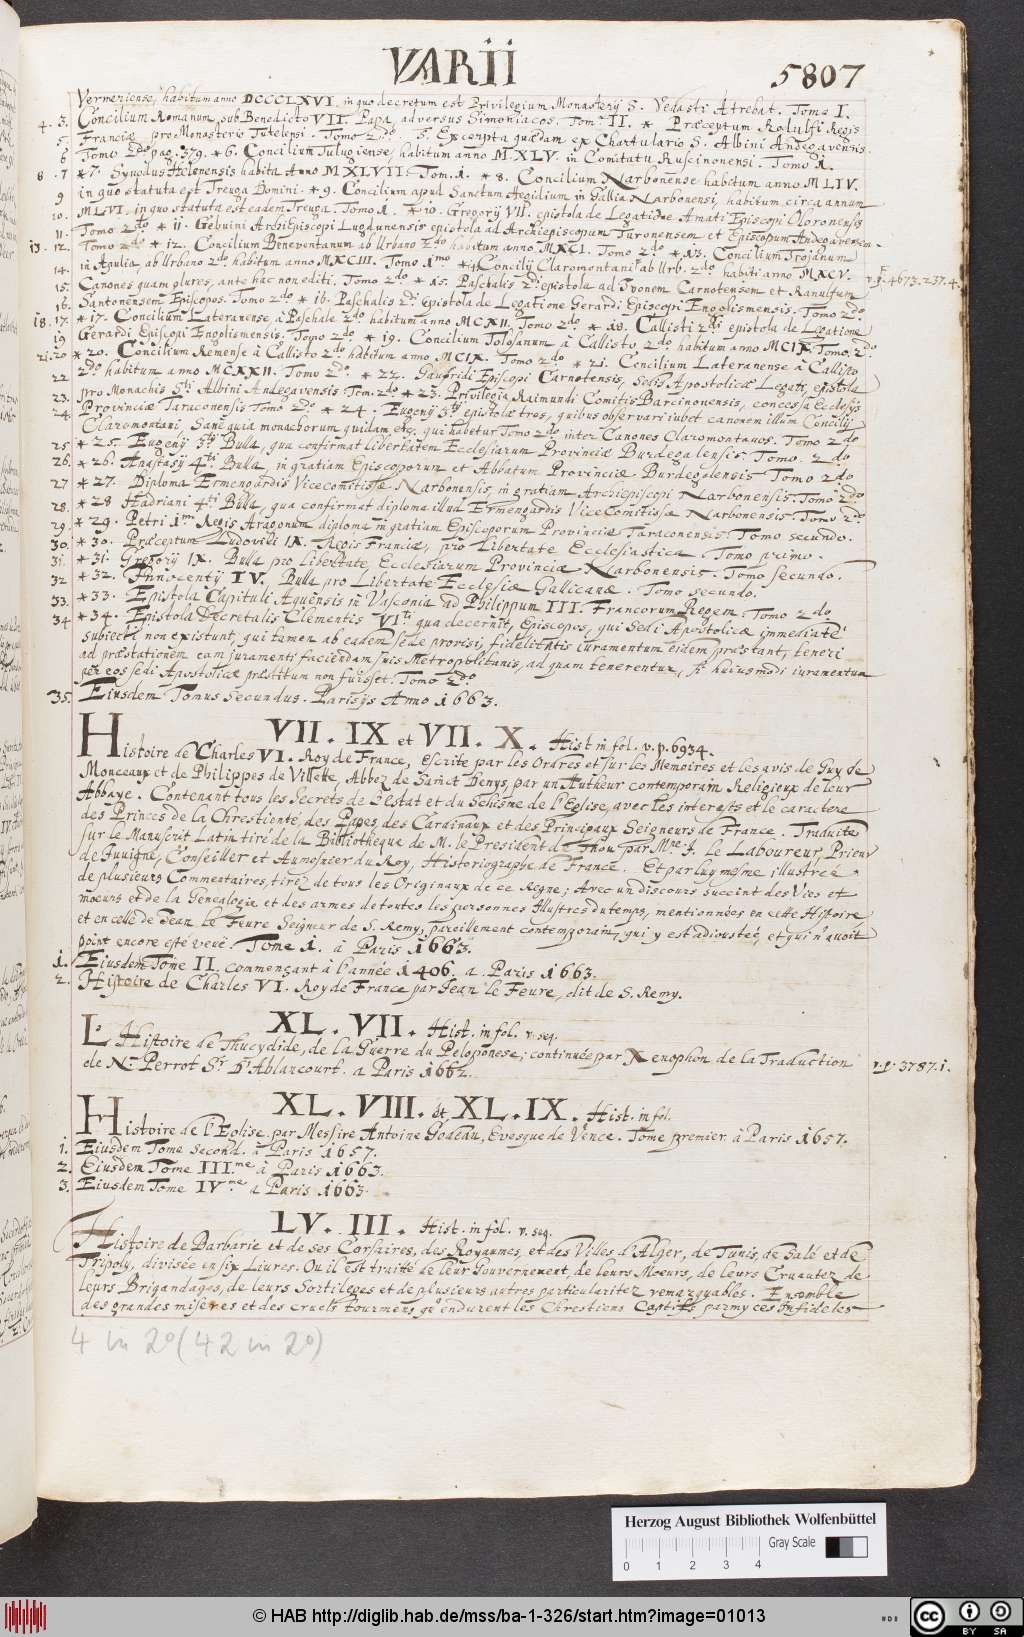 VARII
5807
Vermeriense, habitum anno DCCCLXVI. in quo decretum est Privilegium Monasterÿ S. Vedasti Atrebat. Tomo I.
4. 3. Concilium Romanum, sub Benedicto VII. Papa, adversus Simoniacos. Tom. II. * Præceptum Rodulfi Regis
5. Franciæ pro Monasterio Tutelensi. Tomo 2do. 5. Excerpta quædam ex Chartulario S. Albini Andegavensis.
6 Tomo 2do pag. 379. * 6. Concilium Tulugiense, habitum anno M.XLV. in Comitatu Ruscinonensi. Tomo 1.
8. 7 * 7. Synodus Helenensis habita Anno MXLVII. Tom. 1. * 8. Concilium Narbonense habitum anno MLIV.
9 in quo statuta est Treuga Domini. * 9. Concilium apud Sanctum Aegidium in Gallia Narbonensi, habitum circa annum
10. MLVI. in quo statuta est eadem Treuga. Tomo 1. * 10. Gregorÿ VII. epistola de Legatione Amati Episcopi Oloronensis
11. Tomo 2do * 11. Gebuini Archiepiscopi Lugdunensis epistola ad Archiepiscopum Turonensem et Episcopum Andegavensem.
13. 12. Tomo 2do * 12. Concilium Beneventanum ab Urbano 2do habitum anno MXCI. Tomo 2do * 13. Concilium Trojanum
14. in Apulia, ab Urbano 2do habitum anno MXCIII. Tomo 1mo * 14 Concilÿ Claromontani ab Urb. 2do habiti anno MXCV.
v. p. 4673. 237. 4.
15. Canones quam plures, ante hac non editi. Tomo 2do * 15. Paschalis 2di epistola ad Ivonem Carnotensem et Ranulfum
16. Santonensem Episcopos. Tomo 2do * 16. Paschalis 2di epistola de Legatione Gerardi Episcopi Engolismensis. Tomo 2do
18. 17. * 17. Concilium Lateranense à Paschale 2do habitum anno MCXII. Tomo 2do * 18. Callisti 2di epistola de Legatione
19 Gerardi Episcopi Engolismensis. Tomo 2do * 19. Concilium Tolosanum à Callisto 2do habitum anno MCIX. Tomo. 2do
21. 20 * 20. Concilium Remense à Callisto 2do habitum anno MCIX. Tomo 2do * 21. Concilium Lateranense à Callisto
22 2do habitum anno MCXXII. Tomo 2do * 22. Gaufridi Episcopi Carnotensis, Sedis Apostolicæ Legati, epistola
23. pro Monachis Sti Albini Andegavensis Tom. 2do * 23. Privilegia Raimundi Comitis Barcinonensis, concessa Ecclesÿs
24. Provinciæ Taraconensis Tomo 2do * 24. Eugenÿ 3ÿ epistolæ tres, quibus observari iubet canonem illum Concilÿ
Claromontani, Sane quia monachorum quidam etc. qui habetur Tomo 2do inter Canones Claromontanos. Tomo 2do
25. * 25. Eugenÿ 3ÿ Bulla, qua confirmat libertatem Ecclesiarum Provinciæ Burdegalensis. Tomo. 2do
26. * 26. Anastasÿ 4ti Bulla, in gratiam Episcoporum et Abbatum Provinciæ Burdegalensis Tomo 2do
27 * 27. Diploma Ermengardis Vicecomitissæ Narbonensis, in gratiam Archiepiscopi Narbonensis. Tomo 2do
28. * 28 Hadriani 4ti Bulla, qua confirmat diploma illud Ermengardis Vicecomitissæ Narbonensis. Tomo 2do
29. * 29. Petri 1mi Regis Aragonum diploma in gratiam Episcoporum Provinciæ Taraconensis. Tomo secundo.
30. * 30. Præceptum Ludovici IX. Regis Franciæ, pro libertate Ecclesiastica. Tomo primo.
31. * 31. Gregorÿ IX. Bulla pro libertate, Ecclesiarum Provinciæ Narbonensis. Tomo secundo.
32 * 32. Innocentÿ IV. Bulla pro Libertate Ecclesiæ Gallicanæ. Tomo secundo.
33. * 33. Epistola Capituli Aquensis in Vasconia ad Philippum III. Francorum Regem. Tomo 2do
34 * 34. Epistola Decretalis Clementis VI. qua decernit, Episcopos, qui Sedi Apostolicæ immediatè
subiecti non existunt, qui tamen ab eadem sede provisi, fidelitatis iuramentum eidem præstant, teneri
ad præstationem eam juramenti faciendam suis Metropolitanis, ad quam tenerentur, si huiusmodi iuramentum
per eos sedi Apostolicæ præstitum non fuisset. Tomo 2do
35. Eiusdem Tomus Secundus. Parisÿs Anno 1663.
VII. IX et VII. X. Hist in fol. v. p. 6934.
Histoire de Charles VI. Roy de France, escrite par les Ordres et sur les Memoires et les avis de Guy de
Monceaux et de Philippes de Villette, Abbez de Sainct Denys, par un Autheur contemporain Religieux de leur
Abbaye. Contenant tous les Secrets de l'Estat et du Schisme de l'Eglise, avec les interests et le caractere
des Princes de la Chrestienté, des Papes, des Cardinaux et des Principaux Seigneurs de France. Traduite
sur le Manuscrit Latin tiré de la Bibliotheque de M. le President de Thou par Mre. J. le Laboureur, Prieur
de Iuvigné, Conseiller et Aumosnier du Roy, Historiographe de France. Et par luy mesme illustrée
de plusieurs Commentaires, tirez de tous les Originaux de ce Regne; Avec un discours succint des Vies et
moeurs et de la Genealogie et des armes de toutes les personnes Illustres du temps, mentionnées en cette Histoire
et en celle de Jean le Feure Seigneur de S. Remy, pareillement contemporain, qui y est adioustée, et qui n'avoit
point encore esté veuë. Tome 1. à Paris 1663.
1. Eiusdem Tome II. commençant à l'année 1406. a Paris 1663.
2. Histoire de Charles VI. Roy de France par Jean le Feure, dit de S. Remy.
XL. VII. Hist. in fol. v. seq.
L' Histoire de Thucydide, de la Guerre du Peloponese; continuée par Xenophon de la Traduction
v. p. 3787. 1.
de N. Perrot Sr. d'Ablancourt. a Paris 1662.
XL. VIII. et XL. IX. Hist. in fol.
Histoire de l'Eglise par Messire Antoine Godeau, Evesque de Vence. Tome premier. à Paris 1657.
1. Eiusdem Tome Second. à Paris 1657.
2. Eiusdem Tome III.me à Paris 1663.
3. Eiusdem Tome IVme. a Paris 1663.
LV. III. Hist. in fol. v. seq.
Histoire de Barbarie et de ses Corsaires, des Royaumes, et des Villes d'Alger, de Tunis, de Salé et de
Tripoly, divisée en six Livres. Ou il est traitté de leur Gouvernement, de leurs Moeurs, de leurs Cruautez, de
leurs Brigandages, de leurs Sortileges et de plusieurs autres particularitez remarquables. Ensemble
des grandes miseres et des cruels tourmens qu'endurent les Chrestiens Captifs parmy ces Infideles
4 in 2° (42 in 2°)
Herzog August Bibliothek Wolfenbüttel
Gray Scale
0 1 2 3 4
© HAB http://diglib.hab.de/mss/ba-1-326/start.htm?image=01013
cc BY SA